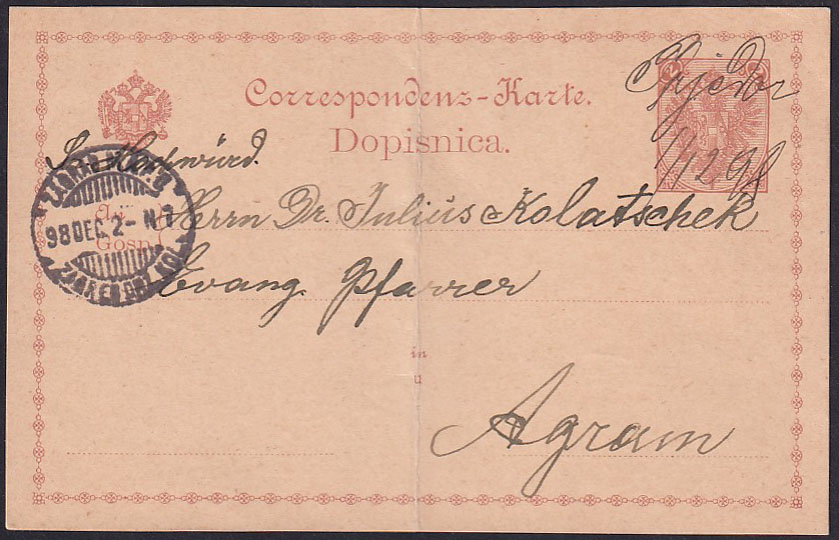 Prjedor
1/12 98
Correspondenz-Karte.
Dopisnica.
Sr. Hochwürd.
An
Gosp.
Herrn Dr. Julius Kolatschek
Evang. Pfarrer
in
u
Agram
ZAGREB
98 DEC. 2 - N 1
ZÁGRÁB